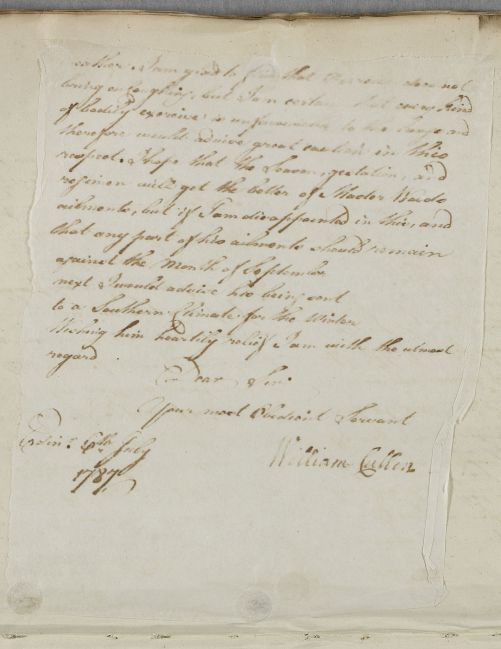 rather. I am glad to find that Exercise does not
bring on coughing, but I am certain that every kind
of bodily exercise is unfavourable to his lungs and
therefore would advise great caution in this
respect. I hope that the Season, gestation, and
regimen will get the better of Master Wards
ailments, but if I am disappointed in this, and
that any part of his ailments should remain
against the Month of September
next I would advise his being sent
to a Southern Climate for the Winter
Wishing him heartily relief I am with the utmost
regard
Dear Sir
Your most Obedient Servant
Edinr. 6th July
1787
William Cullen